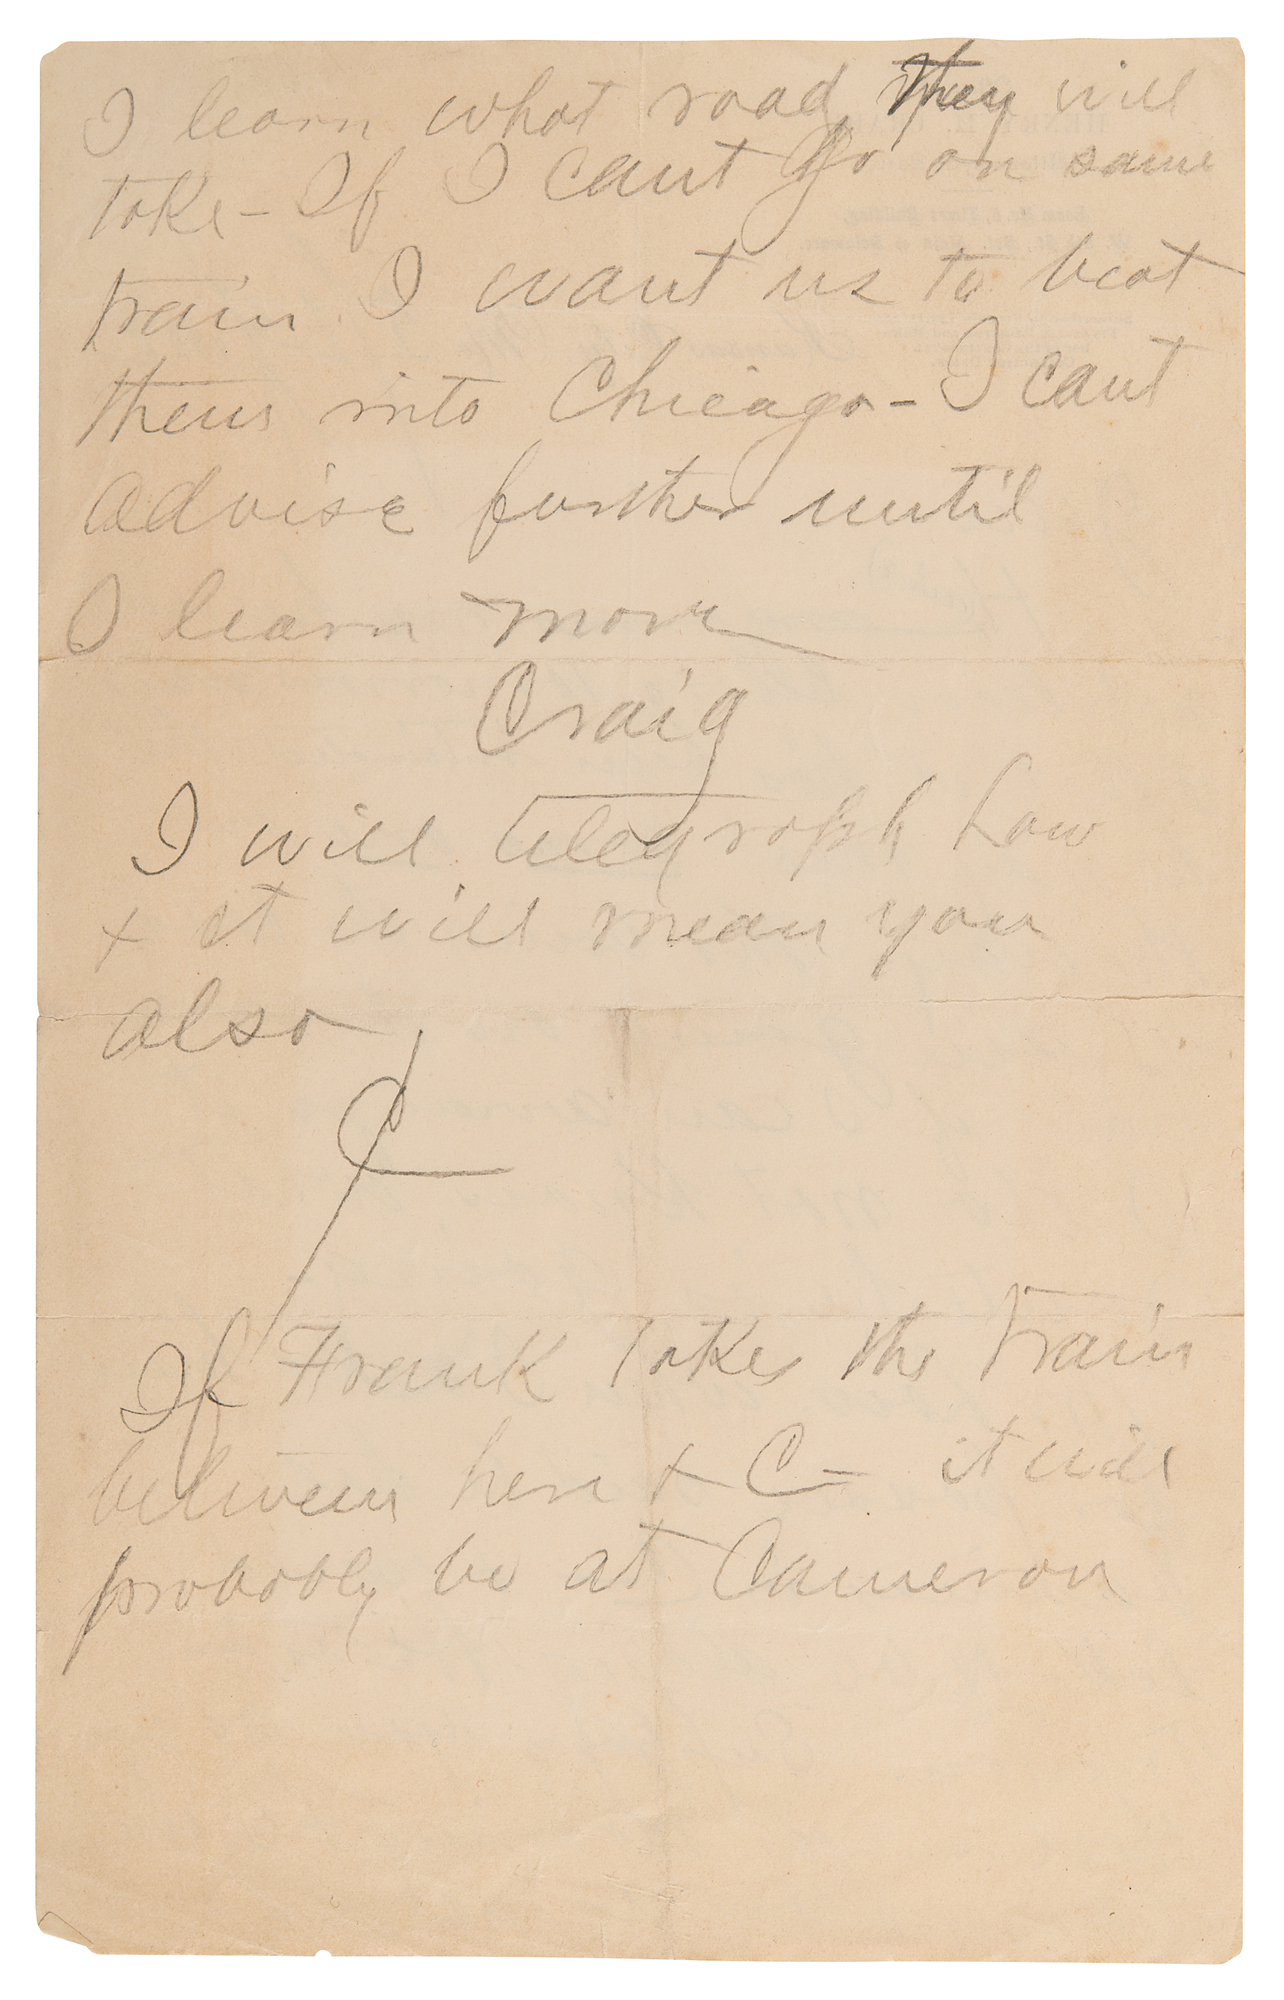 I learn what road they will
take - If I cant go on same
train I want us to beat
them into Chicago - I cant
advise further until
I learn more
Craig
I will telegraph how
+ it will mean you
also
C
If Frank takes the train
between here + C - it will
probably be at Cameron